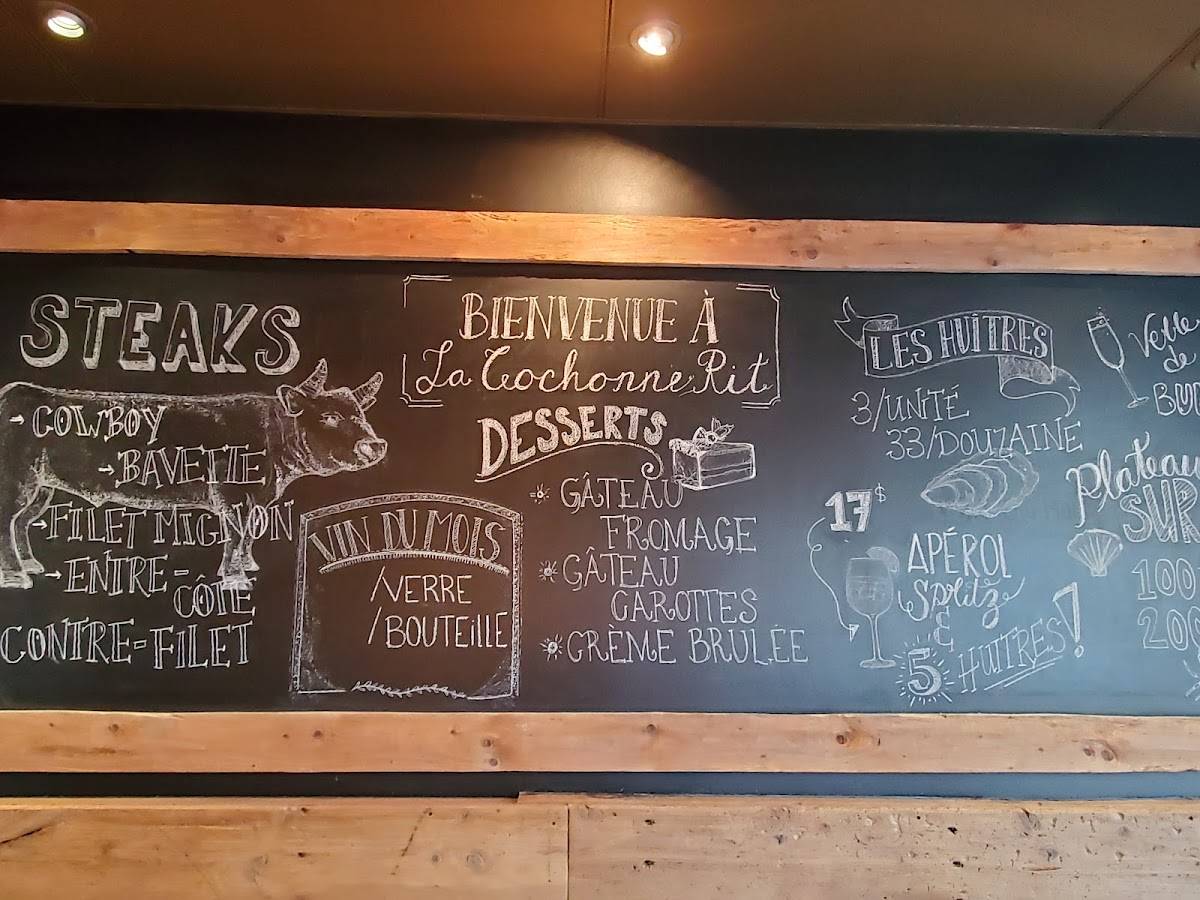 STEAKS
→ COWBOY
→ BAVETTE
→ FILET MIGNON
→ ENTRE-
CÔTE
CONTRE-FILET
VIN DU MOIS
/VERRE
/BOUTEILLE
BIENVENUE À
La Cochonne Rit
DESSERTS
GÂTEAU
FROMAGE
GÂTEAU
CAROTTES
CRÈME BRULÉE
LES HUÎTRES
3/UNITÉ
33/DOUZAINE
17$
APÉROL
Spritz
&
5 HUITRES!
Verre
de
Plateau
SUR
100
200